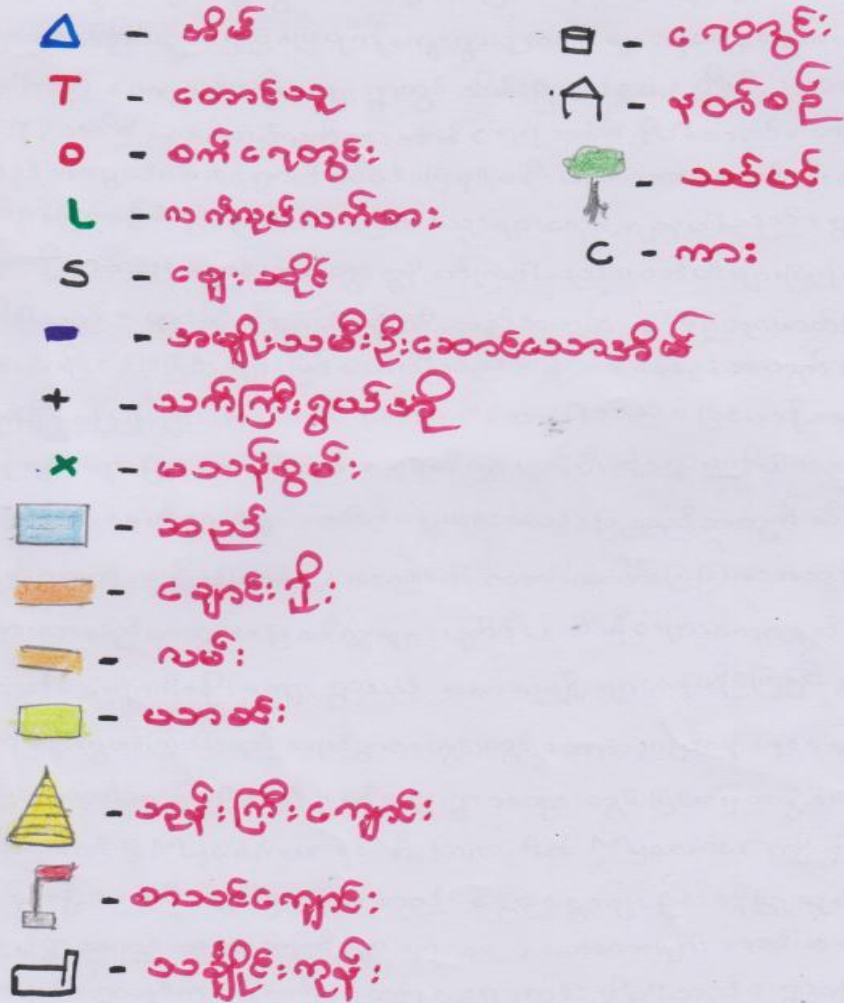 - အိမ်
T - တောင်သူ
- စက်ရေတွင်း
L - လက်လုပ်လက်စား
S - ဈေးဆိုင်
- အမျိုးသမီးဦးဆောင်သောအိမ်
+ - သက်ကြီးရွယ်အို
× - မသန်စွမ်း
- ဆည်
- ချောင်းရိုး
- လမ်း
- ဘုန်းကြီးကျောင်း
- စာသင်ကျောင်း
- သင်္ချိုင်းကုန်း
- ရေတွင်း
- နတ်စဉ်
- သစ်ပင်
C - ကား